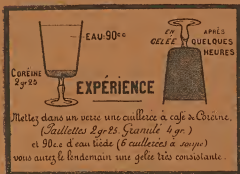 EAU·90cc
CORÉINE
2gr25
EN
GELÉE
APRÈS
QUELQUES
HEURES
EXPÉRIENCE
Mettez dans un verre une cuillerée à café de Coréine,
(Paillettes 2gr.25 Granulé 4 gr.)
et 90c.c d'eau tiède (6 cuillerées à soupe)
vous aurez le lendemain une gelée très consistante.